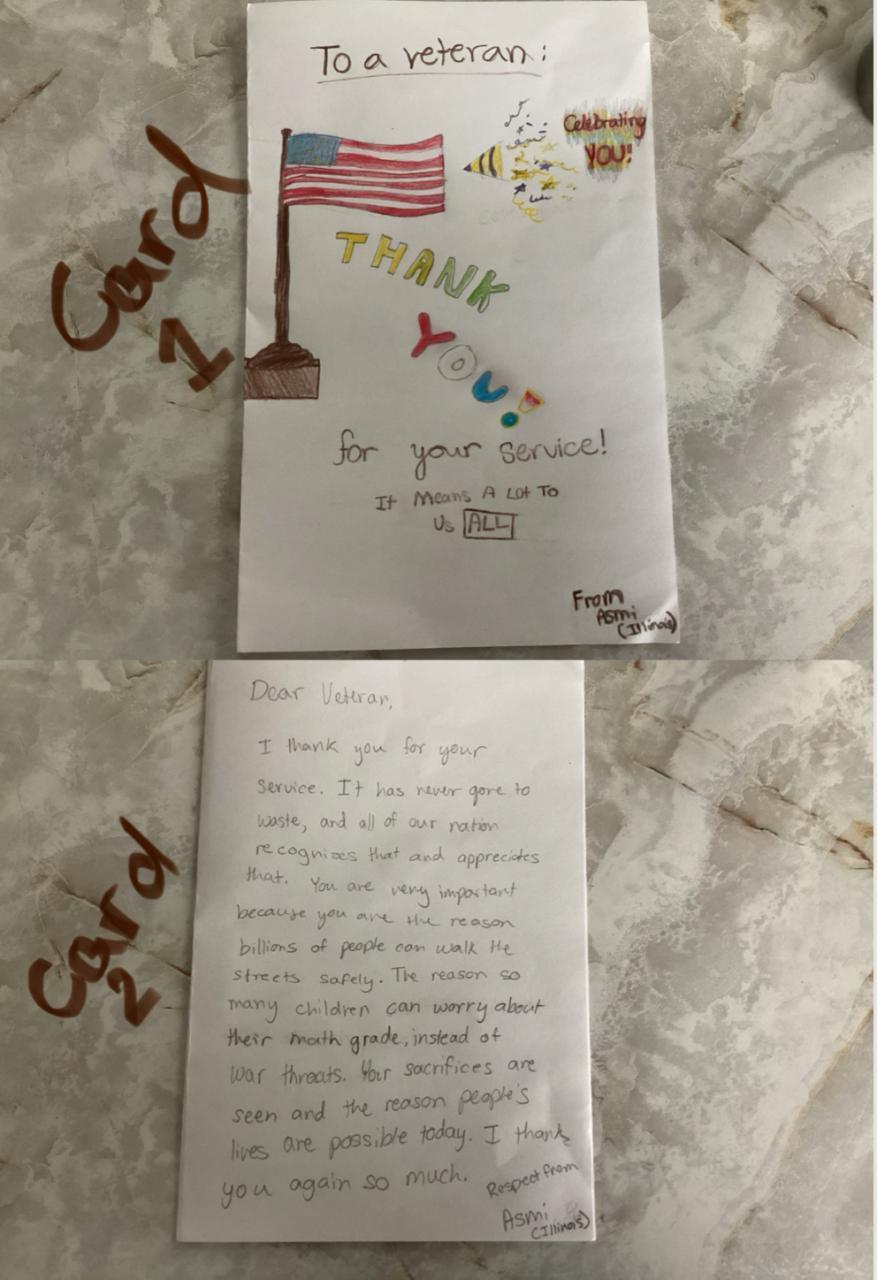 Card
1
To a veteran:
Celebrating
YOU!
THANK
YOU!
for your service!
It Means A Lot To
Us ALL
From
Asmi
(Illinois)
Card
2
Dear Veteran,
I thank you for your
service. It has never gone to
waste, and all of our nation
recognizes that and appreciates
that. You are very important
because you are the reason
billions of people can walk the
streets safely. The reason so
many children can worry about
their math grade, instead of
war threats. Your sacrifices are
seen and the reason people's
lives are possible today. I thank
you again so much.
Respect from
Asmi
(Illinois)